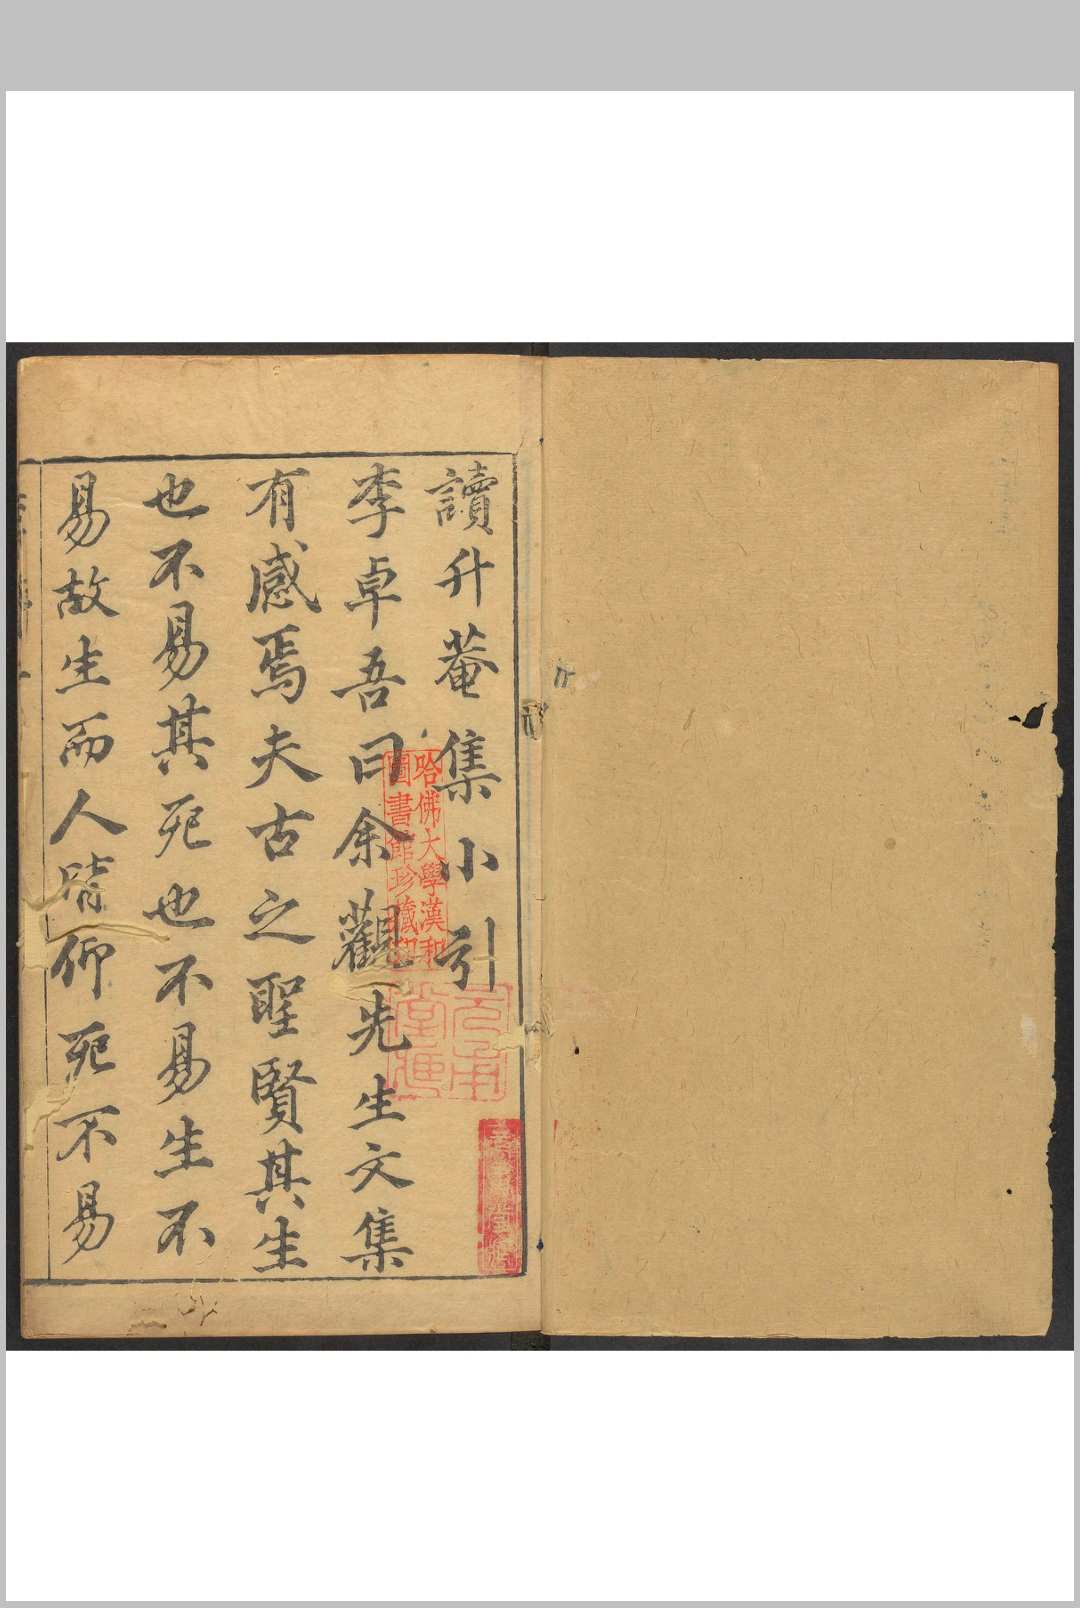 讀升菴集小引
李卓吾曰余觀先生文集
有感焉夫古之聖賢其生
也不易其死也不易生不
易故生而人皆仰死不易
哈佛大學漢和
圖書館珍藏印